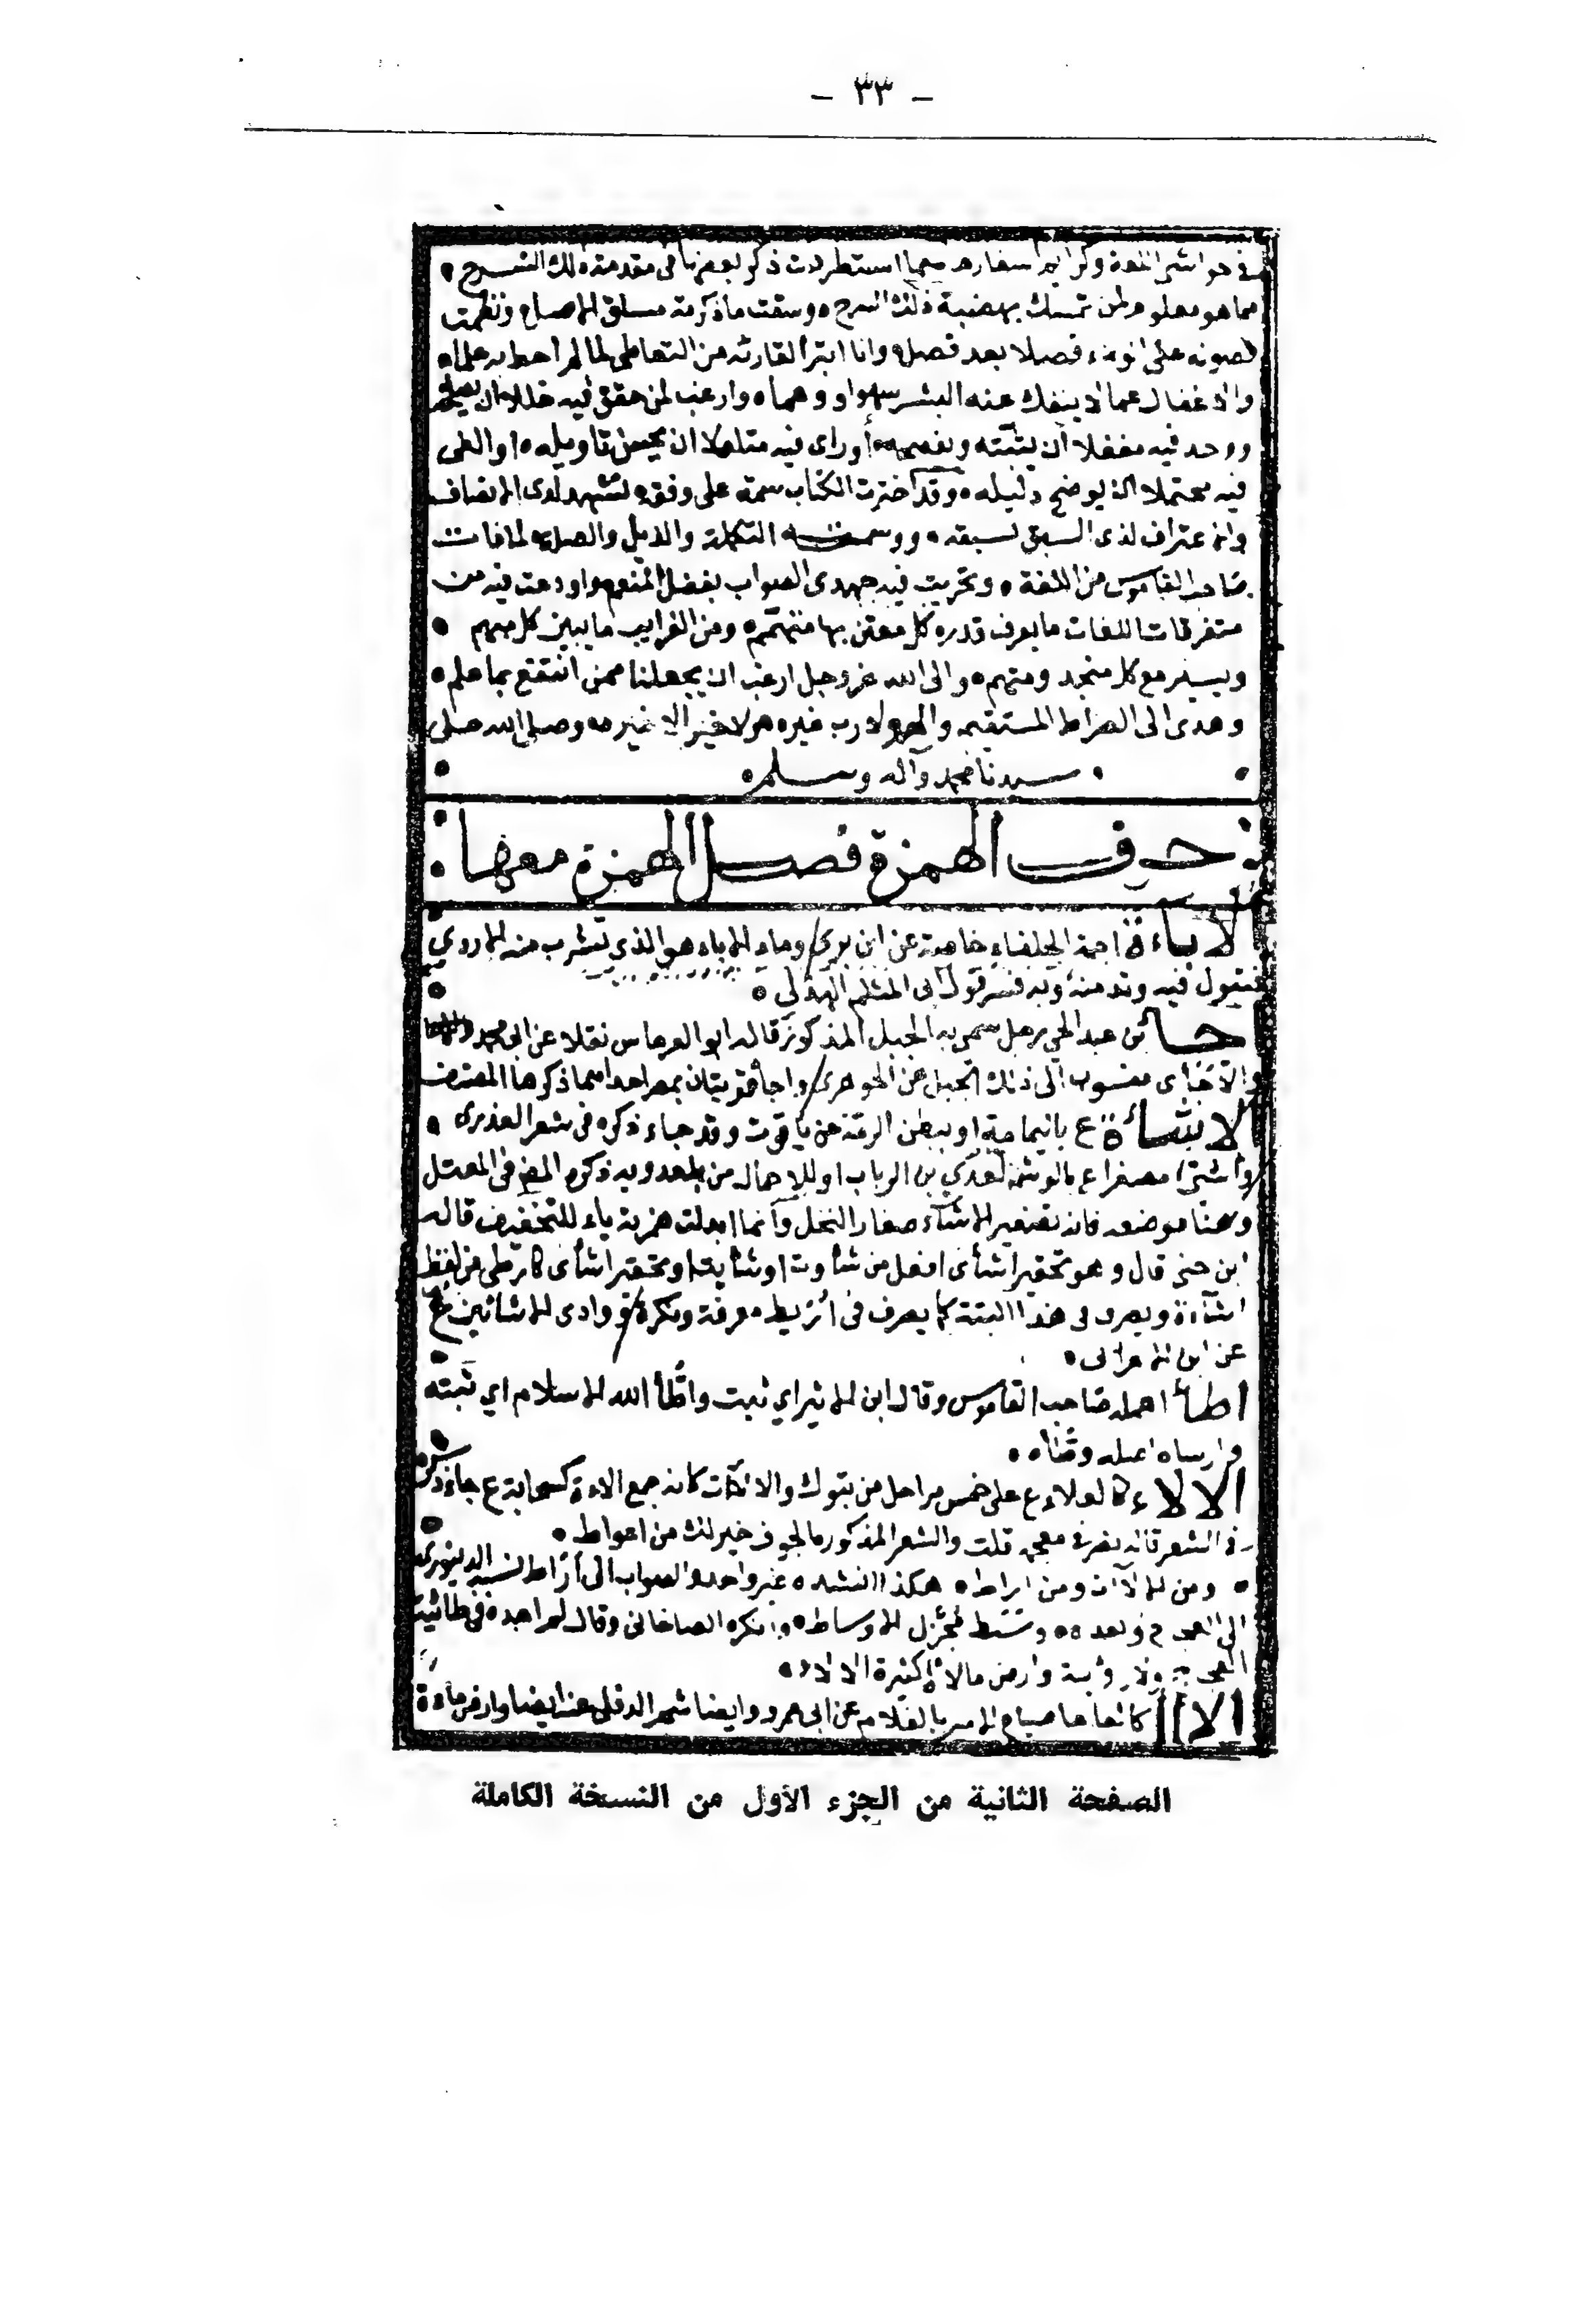 - ٣٣ -
في حواشي اللغة وكرايم اسفارها مما استطردت ذكر بعضها في مقدمة ذلك الشرح
مما هو معلوم لمن تمسك بهضبة ذلك السرح وسقت ما ذكرته مساق الاصل ونظمت
فصوله على انوذه فصلا بعد فصل وانا ابرأ لقارئه من التعاطي لما لم احط به علما
والاغفال عما لا ينفك عنه البشر سهوا ووهما وارغب لمن حقق فيه خللا ان يصلحه
ووجد فيه مغفلا ان يثبته ويفصح أو راى فيه متاملا ان يحسن تاويله او الفى
فيه محتملا ان يوضح دليله وقد اخترت الكتاب سمة على وفقه لتشهد لدى الانصاف
والاعتراف لذى السبق لسبقه ووسمته التكملة والذيل والصلة لما فات
صاحب القاموس من اللغة وتحريت فيه جهدى الصواب بفضل المنعم واودعت فيه من
متفرقات اللغات ما يعرف قدره كل معتن بها متهمم ومن الغرايب ما يبين كل مبهم
ويسير مع كل منجد ومتهم والى الله عز وجل ارغب ان يجعلنا ممن انتفع بما علم
وهدى الى الصراط المستقيم لا رب غيره ولا خير الا خيره وصلى الله على
سيدنا محمد وآله وسلم
حرف الهمزة فصل الهمزة معها
الاباءة اجمة الحلفاء خاصة عن ابن برى وماء الاباء هو الذي تشرب منه الاروي
فتبول فيه وتدمنه وبه فسر قول ابى المثلم الهذلي
اجأ بن عبد الحي رجل سمى به الجبل المذكور قاله ابو العرماس نقلا عن ابى محمد
والاجأى منسوب الى ذلك الجبل عن الجوهرى واجأ قريتان بمصر احداهما ذكرها المصنف
ع باليمامة او ببطن الرمة عن ياقوت وقد جاء ذكره فى شعر العذرى
واشى مصغرا ع بالوشم لعدي بن الرباب او للاحمال من بلعدويه ذكره المص فى المعتل
وهنا موضعه فانه تصغير الاشآء صغار النخل وانما ابدلت همزته ياء للتخفيف قاله
ابن جنى قال وهو تحقير اشأى افعل من شأوت او شأيت او تحقير اشأى كارطى من لفظ
اشآءة ويصرف فى هذا البتة كما يصرف فى اريط معرفة ونكرة ووادى الاشائين ع
عن ابن الاعرابى
اطأ اهمله صاحب القاموس وقال ابن الاثير اي ثبت واطأ الله الاسلام اي ثبته
وارساه اصله وطأه
الالاء كالعلاء ع على خمس مراحل من تبوك والالاآت كانه جمع الاءة كسحابة ع جاء ذكره
فى الشعر قاله نصر فى معجمه قلت والشعر المذكور ما لجوف خير لك من اغواط
ومن الالاآت ومن اراط هكذا انشده غير واحد والصواب الى أراط نسبه الدينورى
الى العجاج وبعده وشط الاوساط وانكره الصاغانى وقال لم اجده فى طائية
العجاج ولا رؤبة وارض مالاة كثيرة الالاء
الاأأ كالعاعا صياح الامير بالغلام عن ابى عمرو وايضا شجر الدفلى عنه ايضا وارض مآءة
الصفحة الثانية من الجزء الأول من النسخة الكاملة